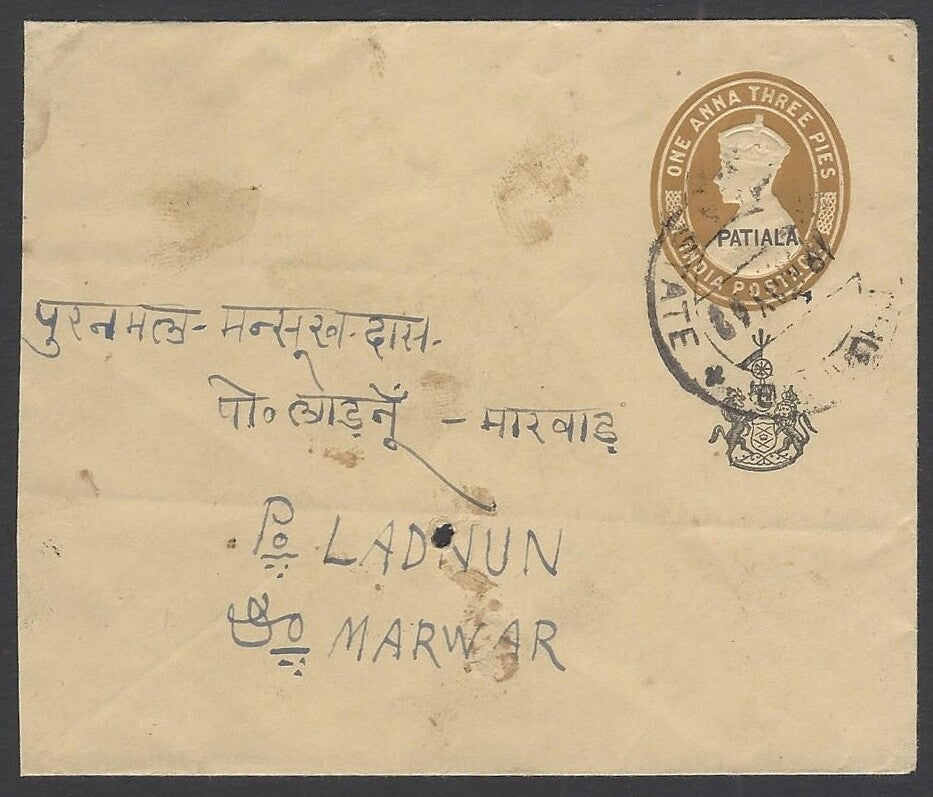 ONE ANNA THREE PIES
PATIALA
INDIA POSTAGE
ATE
पुरनमल - मन्सूख - दास -
पो॰ लाड़नूँ - मारवाड़
Po LADNUN
MARWAR